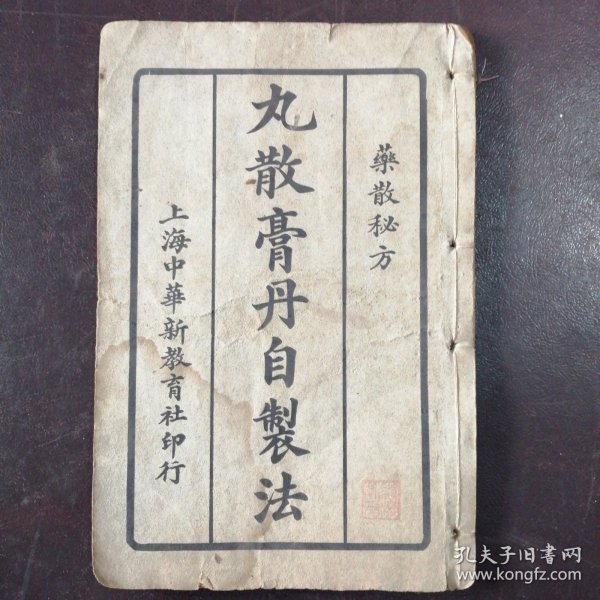 藥散秘方
丸散膏丹自製法
上海中華新教育社印行
孔夫子旧書网
www.kongfz.com